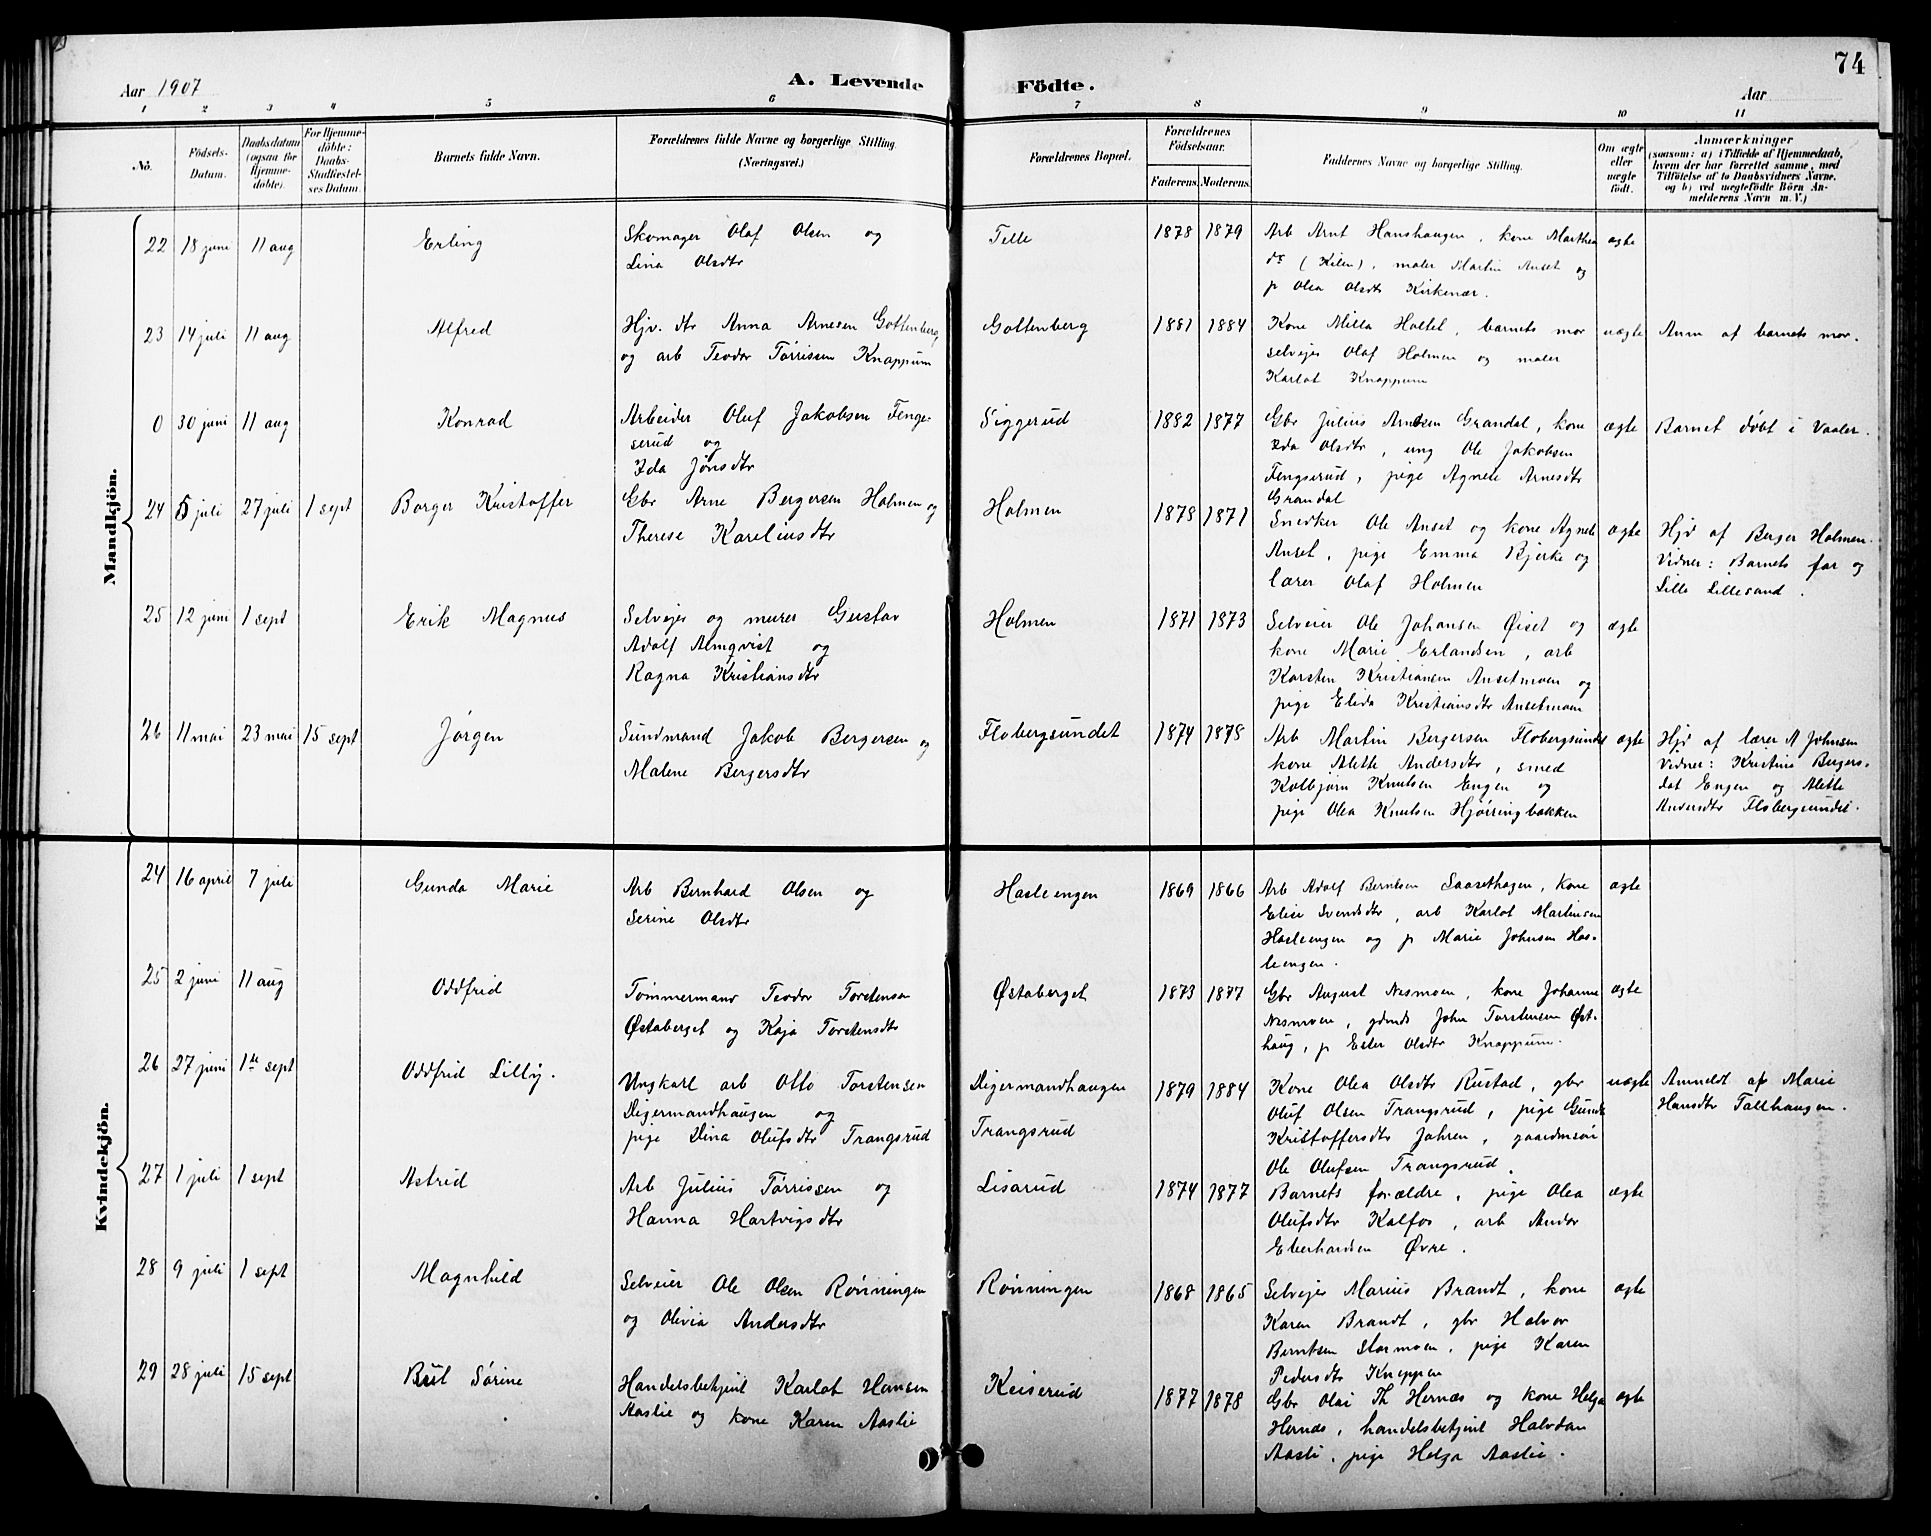 74
Aar 1907
A. Levende
Födte.
Aar
1 2 3 4 5 6 7 8 9 10 11
No.
Födsels-
Datum.
Daabsdatum
(ogsaa for
Hjemme-
döbte).
For Hjemme-
döbte:
Daabs-
Stadfæstel-
ses Datum.
Barnets fulde Navn.
Forældrenes fulde Navne og borgerlige Stilling
(Næringsvei.)
Forældrenes Bopæl.
Forældrenes
Födselsaar.
Faderens. Moderens.
Faddernes Navne og borgerlige Stilling.
Om ægte
eller
uægte
födt.
Anmærkninger
(saasom: a) i Tilfælde af Hjemmedaab,
hvem der har forrettet samme, med
Tilföielse af to Daabsvidners Navne,
og b) ved uægtefödte Börn An-
melderens Navn m. V.)
Mandkjön.
22 18 juni 11 aug Erling
Skomager Olaf Olsen og
Lina Olsdtr
Telle 1878 1879
Arb Arnt Hanshaugen, kone Marthea
ds (Kilen), maler Martin Anset og
p Olea Olsdtr Kirkenær.
ægte
23 14 juli 11 aug Alfred
Hjv. dtr Anna Arnesen Gottenberg
og arb Teodor Tørrissen Knappum
Gottenberg 1881 1884
Kone Milla Holtet, barnets mor
selvejer Olaf Holmen og maler
Karlot Knappum
uægte
Anm af barnets mor.
0 30 juni 11 aug Konrad
Arbeider Oluf Jakobsen Fenge-
serud og
Ida Jønsdtr
Siggerud 1882 1877
Gbr Julius Arnesen Grandal, kone
Ida Olsdtr, ung Ole Jakobsen
Fengserud, pige Agnete Arnesdtr
Grandal
ægte
Barnet døbt i Vaaler.
24 5 juli 27 juli 1 sept Borger Kristoffer
Gbr Arne Bergersen Holmen og
Therese Kareliusdtr
Holmen 1878 1871
Snedker Ole Anset og kone Agnete
Anset, pige Emma Bjerke og
lærer Olaf Holmen
ægte
Hjd af Berger Holmen.
Vidner: Barnets far og
Lille Lillesand.
25 12 juni 1 sept Erik Magnus
Selvejer og murer Gustav
Adolf Almqvist og
Ragna Kristiansdtr
Holmen 1871 1873
Selveier Ole Johansen Øiset og
kone Marie Erlandsen, arb
Karsten Kristiansen Ansetmoen og
pige Elida Kristiansdtr Ansetmoen
ægte
26 11 mai 23 mai 15 sept Jørgen
Sundmand Jakob Bergersen og
Malene Bergersdtr
Flobergsundet 1874 1878
Arb Martin Bergersen Flobergsundet
kone Alette Andersdtr, smed
Kolbjørn Knutsen Engen og
pige Olea Knutsen Hjørringbakken
ægte
Hjd af lærer A Johnsen
Vidner: Kristine Bergers-
dat Engen og Alette
Andersdtr Flobergsundet.
Kvindekjön.
24 16 april 7 juli Gunda Marie
Arb Bernhard Olsen og
Serine Olsdtr
Hasleengen 1869 1866
Arb Adolf Berntsen Saasethagen, kone
Elise Svendsdtr, arb Karlot Martinsen
Hasleengen og p Marie Johnsen Has-
leengen.
ægte
25 2 juni 11 aug Oddfrid
Tømmermand Teodor Torstensen
Østaberget og Kaja Torstensdtr
Østaberget 1873 1877
Gbr August Nesmoen, kone Johanne
Nesmoen, gdmds John Torstensen Øst-
haug, p Ester Olsdtr Knappum.
ægte
26 27 juni 1ste sept Oddfrid Lilly.
Ungkarl arb Otto Torstensen
Digermandhaugen og
pige Dina Olufsdtr Trangsrud
Digermandhaugen
Trangsrud
1879 1884
Kone Olea Olsdtr Rustad, gbr
Oluf Olsen Trangsrud, pige Gunda
Kristoffersdtr Jahren, gaardmsøn
Ole Olufsen Trangsrud.
uægte
Anmeldt af Marie
Hansdtr Tallhaugen.
27 1 juli 1 sept Astrid
Arb Julius Tørrissen og
Hanna Hartvigsdtr
Lisarud 1874 1877
Barnets forældre, pige Olea
Olufsdtr Kalfos, arb Andor
Eberhardsen Øvre.
ægte
28 9 juli 1 sept Magnhild
Selveier Ole Olsen Rønningen
og Olivia Andersdtr
Rønningen 1868 1865
Selvejer Marius Brandt, kone
Karen Brandt, gbr Halvor
Berntsen Stormoen, pige Karen
Pedersdtr Kneppen
ægte
29 28 juli 15 sept Sørine
Handelsbetjent Karlot Hansen
Aaslie og kone Karen Aaslie
Keiserud 1877 1878
Gbr Olai Th Hernæs og kone Helga
Hernæs, handelsbetjent Halvdan
Aasli, pige Helga Aaslie.
ægte